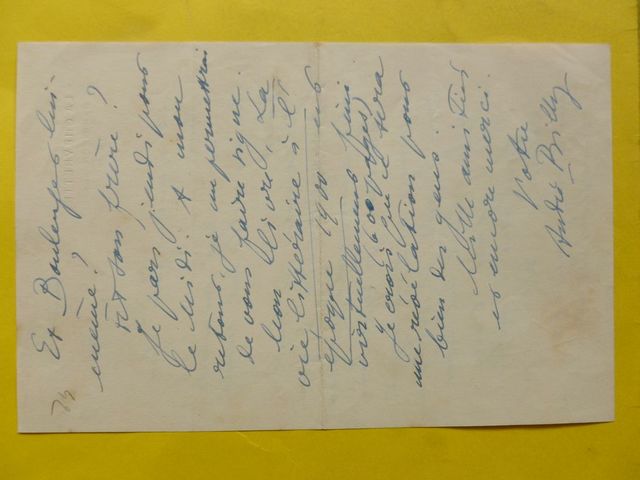 Et Boulenger lui-
même ?
Et son frère ?
Je pars jeudi pour
le Midi. A mon
retour, je me permettrai
de vous faire signe.
Mon livre, La
vie littéraire à l'
époque 1900 est
virtuellement fini
(600 pages)
Je crois qu'il sera
une révélation pour
bien des gens.
Mille amitiés
et encore merci.
Votre
André Billy